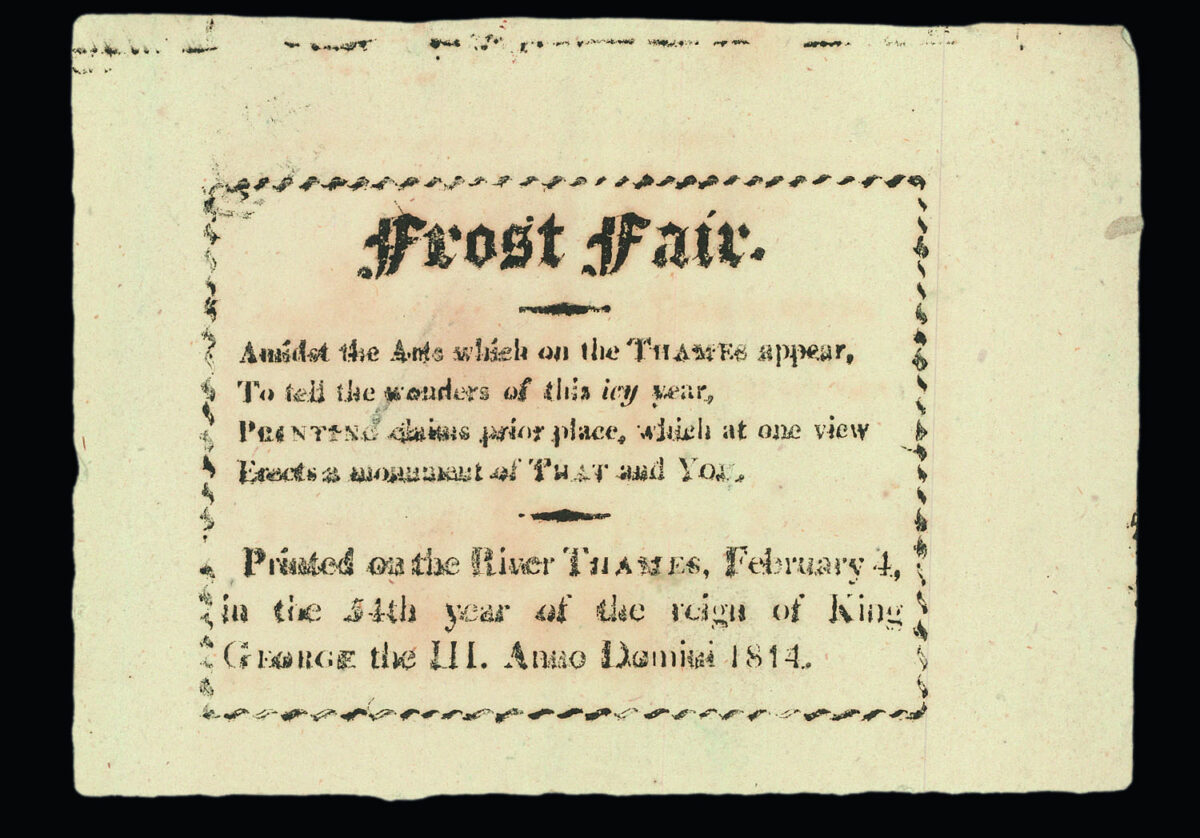 Frost Fair.
Amidst the Arts which on the THAMES appear,
To tell the wonders of this icy year,
PRINTING claims prior place, which at one view
Erects a monument of THAT and YOU.
Printed on the River THAMES, February 4,
in the 54th year of the reign of King
GEORGE the III. Anno Domini 1814.